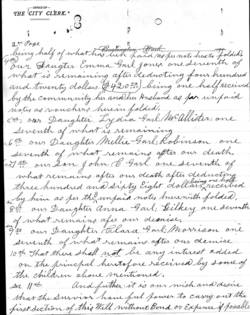 OFFICE OF
THE CITY CLERK.
2nd Page
being half of what has been
our Daughter Emma Gail Jones one seventh of
what is remaining after deducting four hundred
and twenty dollars $420.00 being one half received
by the community her and her husband as per unpaid
note or voucher herein folded
5th our Daughter Lydia Gail McAllister one
seventh of what is remaining
6th our Daughter Gail Robinson one
seventh of what remains after our death
7th our Son John C Gail one seventh of
what remains after our death after deducting
three hundred and sixty eight dollars received
by him as per the unpaid note herewith folded
8th our Daughter Anna Gail one seventh
of what remains after our demise
9th our Daughter Clara Gail Morrison one
seventh of what remains after our demise
10th that there shall not be any interest added
on the principal heretofore received by some of
the children above mentioned.
11th And further it is our wish and desire
that the survivor have full power to carry out the
first section of this Will without bond or expense if possible